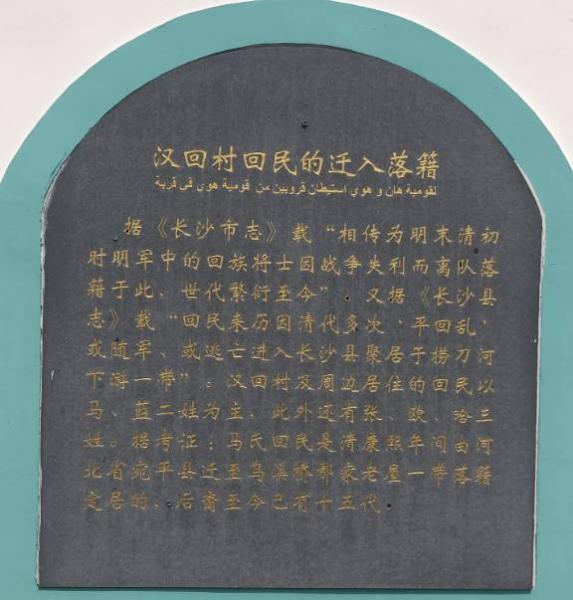 汉回村回民的迁入落籍
لقومية هان و هوي استيطان قرويين من قومية هوي في قرية
据《长沙市志》载“相传为明末清初
时明军中的回族将士因战争失利而离队落
籍于此，世代繁衍至今”。又据《长沙县
志》载“回民来历因清代多次‘平回乱’
或随军、或逃亡进入长沙县聚居于捞刀河
下游一带”。汉回村及周边居住的回民以
马、蓝二姓为主，此外还有张、三
姓。据考证：马氏回民是清康熙年间由河
北省宛平县迁至乌溪桥郝家老屋一带落籍
定居的，后裔至今已有十五代。